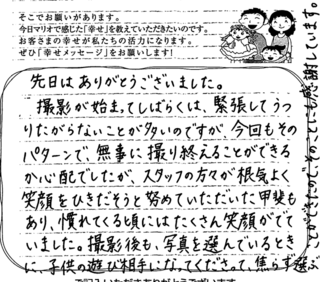 そこでお願いがあります。
今日マリオで感じた「幸せ」を教えていただきたいのです。
お客さまの幸せが私たちの活力になります。
ぜひ「幸せメッセージ」をお願いします!
先日はありがとうございました。
撮影が始まってしばらくは、緊張してうつ
りたがらないことが多いのですが、今回もその
パターンで、無事に撮り終えることができる
か心配でしたが、スタッフの方々が根気よく
笑顔をひきだそうと努めていただいた甲斐も
あり、慣れてくる頃にはたくさん笑顔がでて
いました。撮影後も、写真を選んでいるとき
に、子供の遊び相手になってくださって、焦らず選ぶ
ことができたので、そのことにも感謝しています。